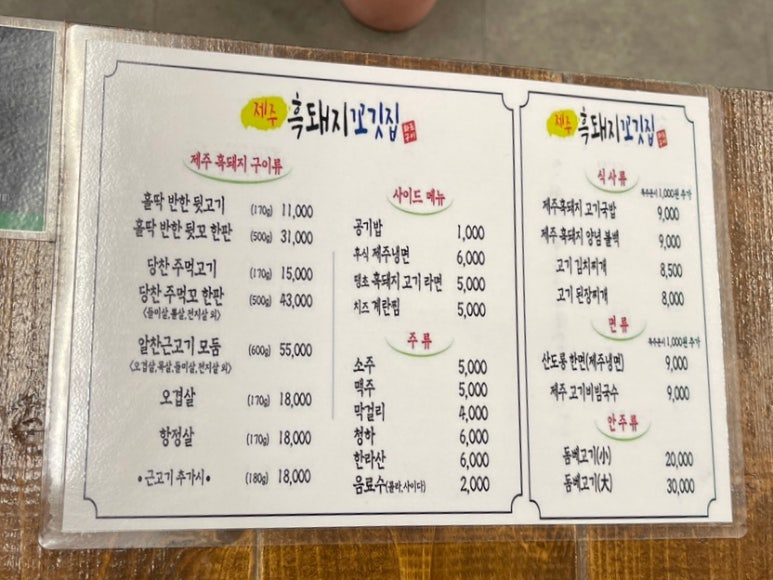 제주 흑돼지꼬깃집
제주 흑돼지 구이류
홀딱 반한 뒷고기 (170g) 11,000
홀딱 반한 뒷꼬 한판 (500g) 31,000
당찬 주먹고기 (170g) 15,000
당찬 주먹꼬 한판 (500g) 43,000
알찬근고기 모둠 (600g) 55,000
오겹살 (170g) 18,000
항정살 (170g) 18,000
• 근고기 추가시 • (180g) 18,000
사이드 메뉴
공기밥 1,000
후식 제주냉면 6,000
땡초 흑돼지 고기 라면 5,000
치즈 계란찜 5,000
주 류
소주 5,000
맥주 5,000
막걸리 4,000
청하 6,000
한라산 6,000
음료수(콜라,사이다) 2,000
제주 흑돼지꼬깃집
식사류
1,000원 추가
제주흑돼지 고기국밥 9,000
제주흑돼지 양념 불백 9,000
고기 김치찌개 8,500
고기 된장찌개 8,000
면 류
1,000원 추가
산도롱 한면(제주냉면) 9,000
제주 고기비빔국수 9,000
안주류
돔베고기(小) 20,000
돔베고기(大) 30,000